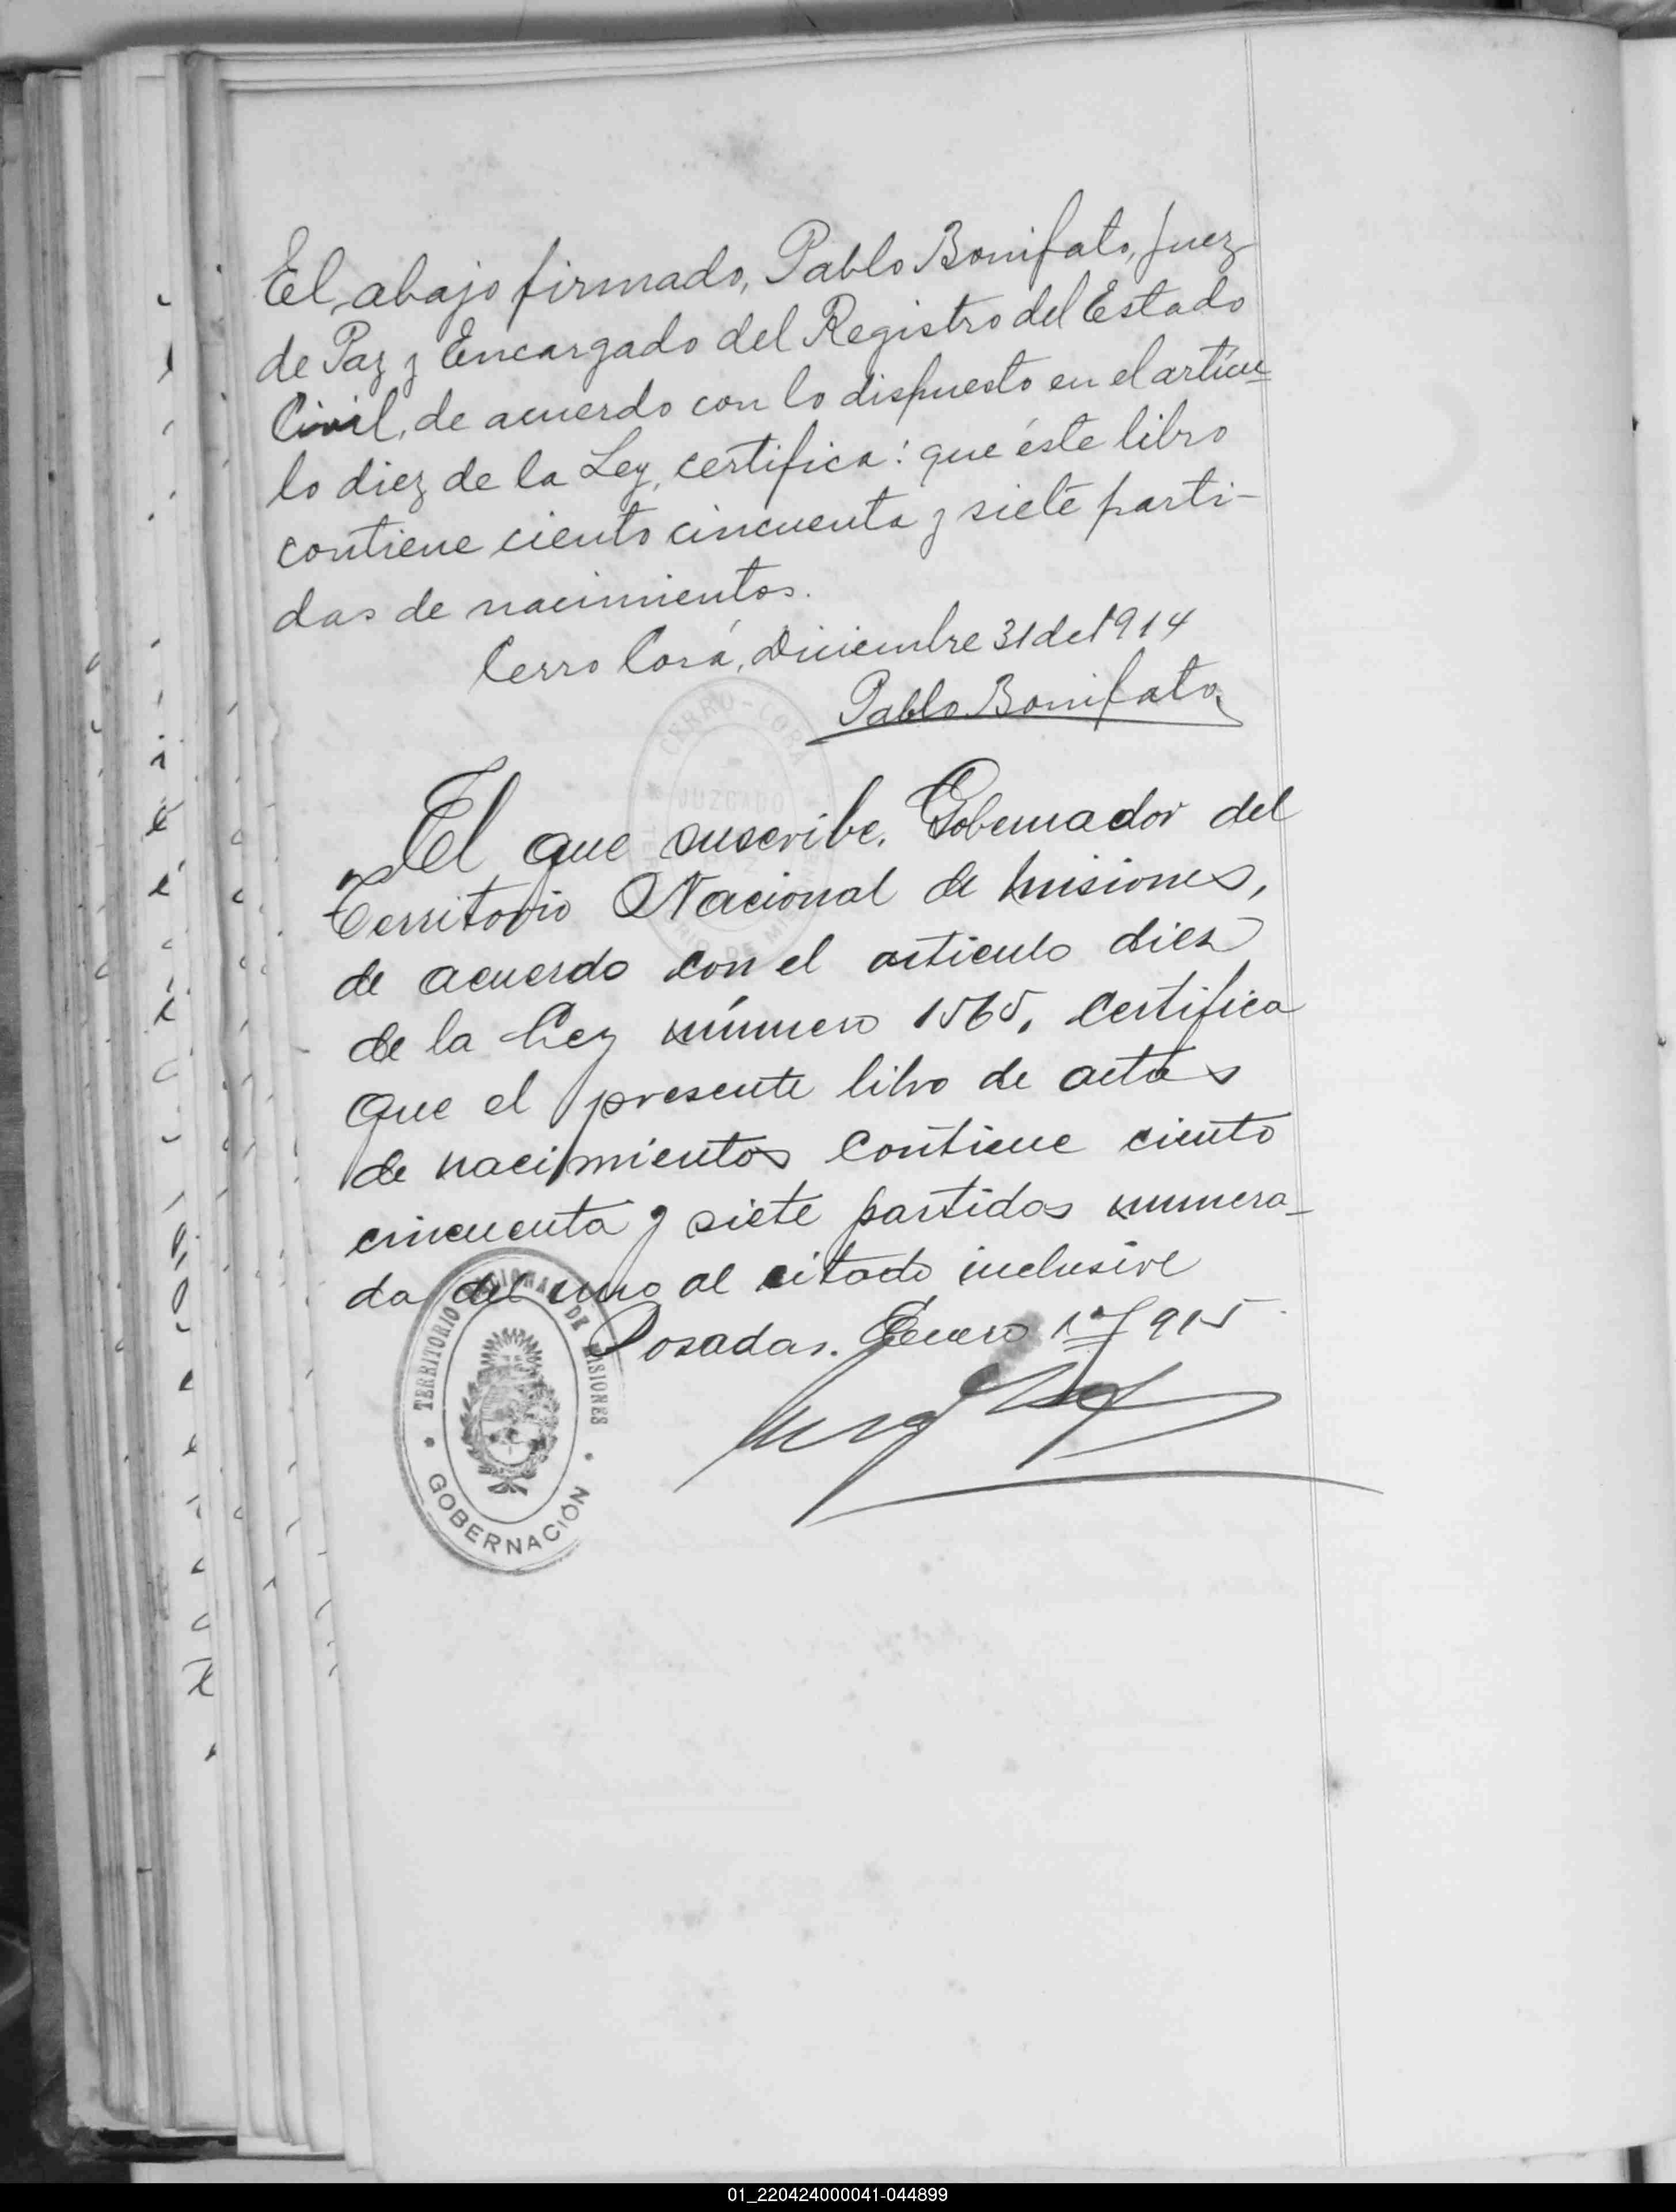 El abajo firmado, Pablo Bonifato, Juez
de Paz y Encargado del Registro del Estado
Civil, de acuerdo con lo dispuesto en el artícu=
lo diez de la Ley, certifica: que éste libro
contiene ciento cincuenta y siete parti-
das de nacimientos.
Cerro Corá, Diciembre 31 de 1914
Pablo Bonifato
CERRO-CORÁ
JUZGADO
El que suscribe, Gobernador del
Territorio Nacional de Misiones,
de acuerdo con el articulo diez
de la Ley número 1565, certifica
que el presente libro de actas
de nacimientos contiene ciento
cincuenta y siete partidas numera-
da del uno al citado inclusive
Posadas. Enero 1º 1915
TERRITORIO NACIONAL DE MISIONES
GOBERNACIÓN
01_220424000041-044899